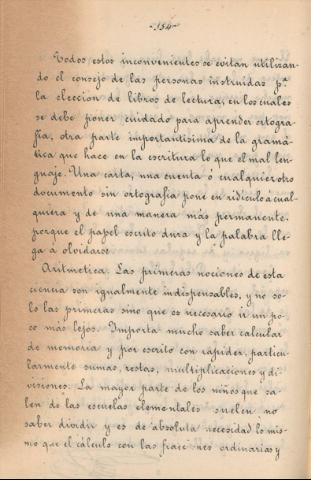 -154-
Todos estos inconvenientes se evitan utilizan-
do el consejo de las personas instruidas pª
la eleccion de libros de lectura, en los cuales
se debe poner cuidado para aprender ortogra-
fía, otra parte importantísima de la gramá-
tica que hace en la escritura lo que el mal len-
guaje. Una carta, una cuenta ó cualquier otro
documento sin ortografía pone en ridículo á cual-
quiera y de una manera más permanente,
porque el papel escrito dura y la palabra lle-
ga á olvidarse.
Aritmética. Las primeras nociones de esta
ciencia son igualmente indispensables, y no so-
lo las primeras sino que es necesario ir un po-
co más lejos. Importa mucho saber calcular
de memoria y por escrito con rapidez, particu-
larmente sumas, restas, multiplicaciones y di-
visiones. La mayor parte de los niños que sa-
len de las escuelas elementales suelen no
saber dividir y es de absoluta necesidad lo mis-
mo que el cálculo con las fracciones ordinarias y